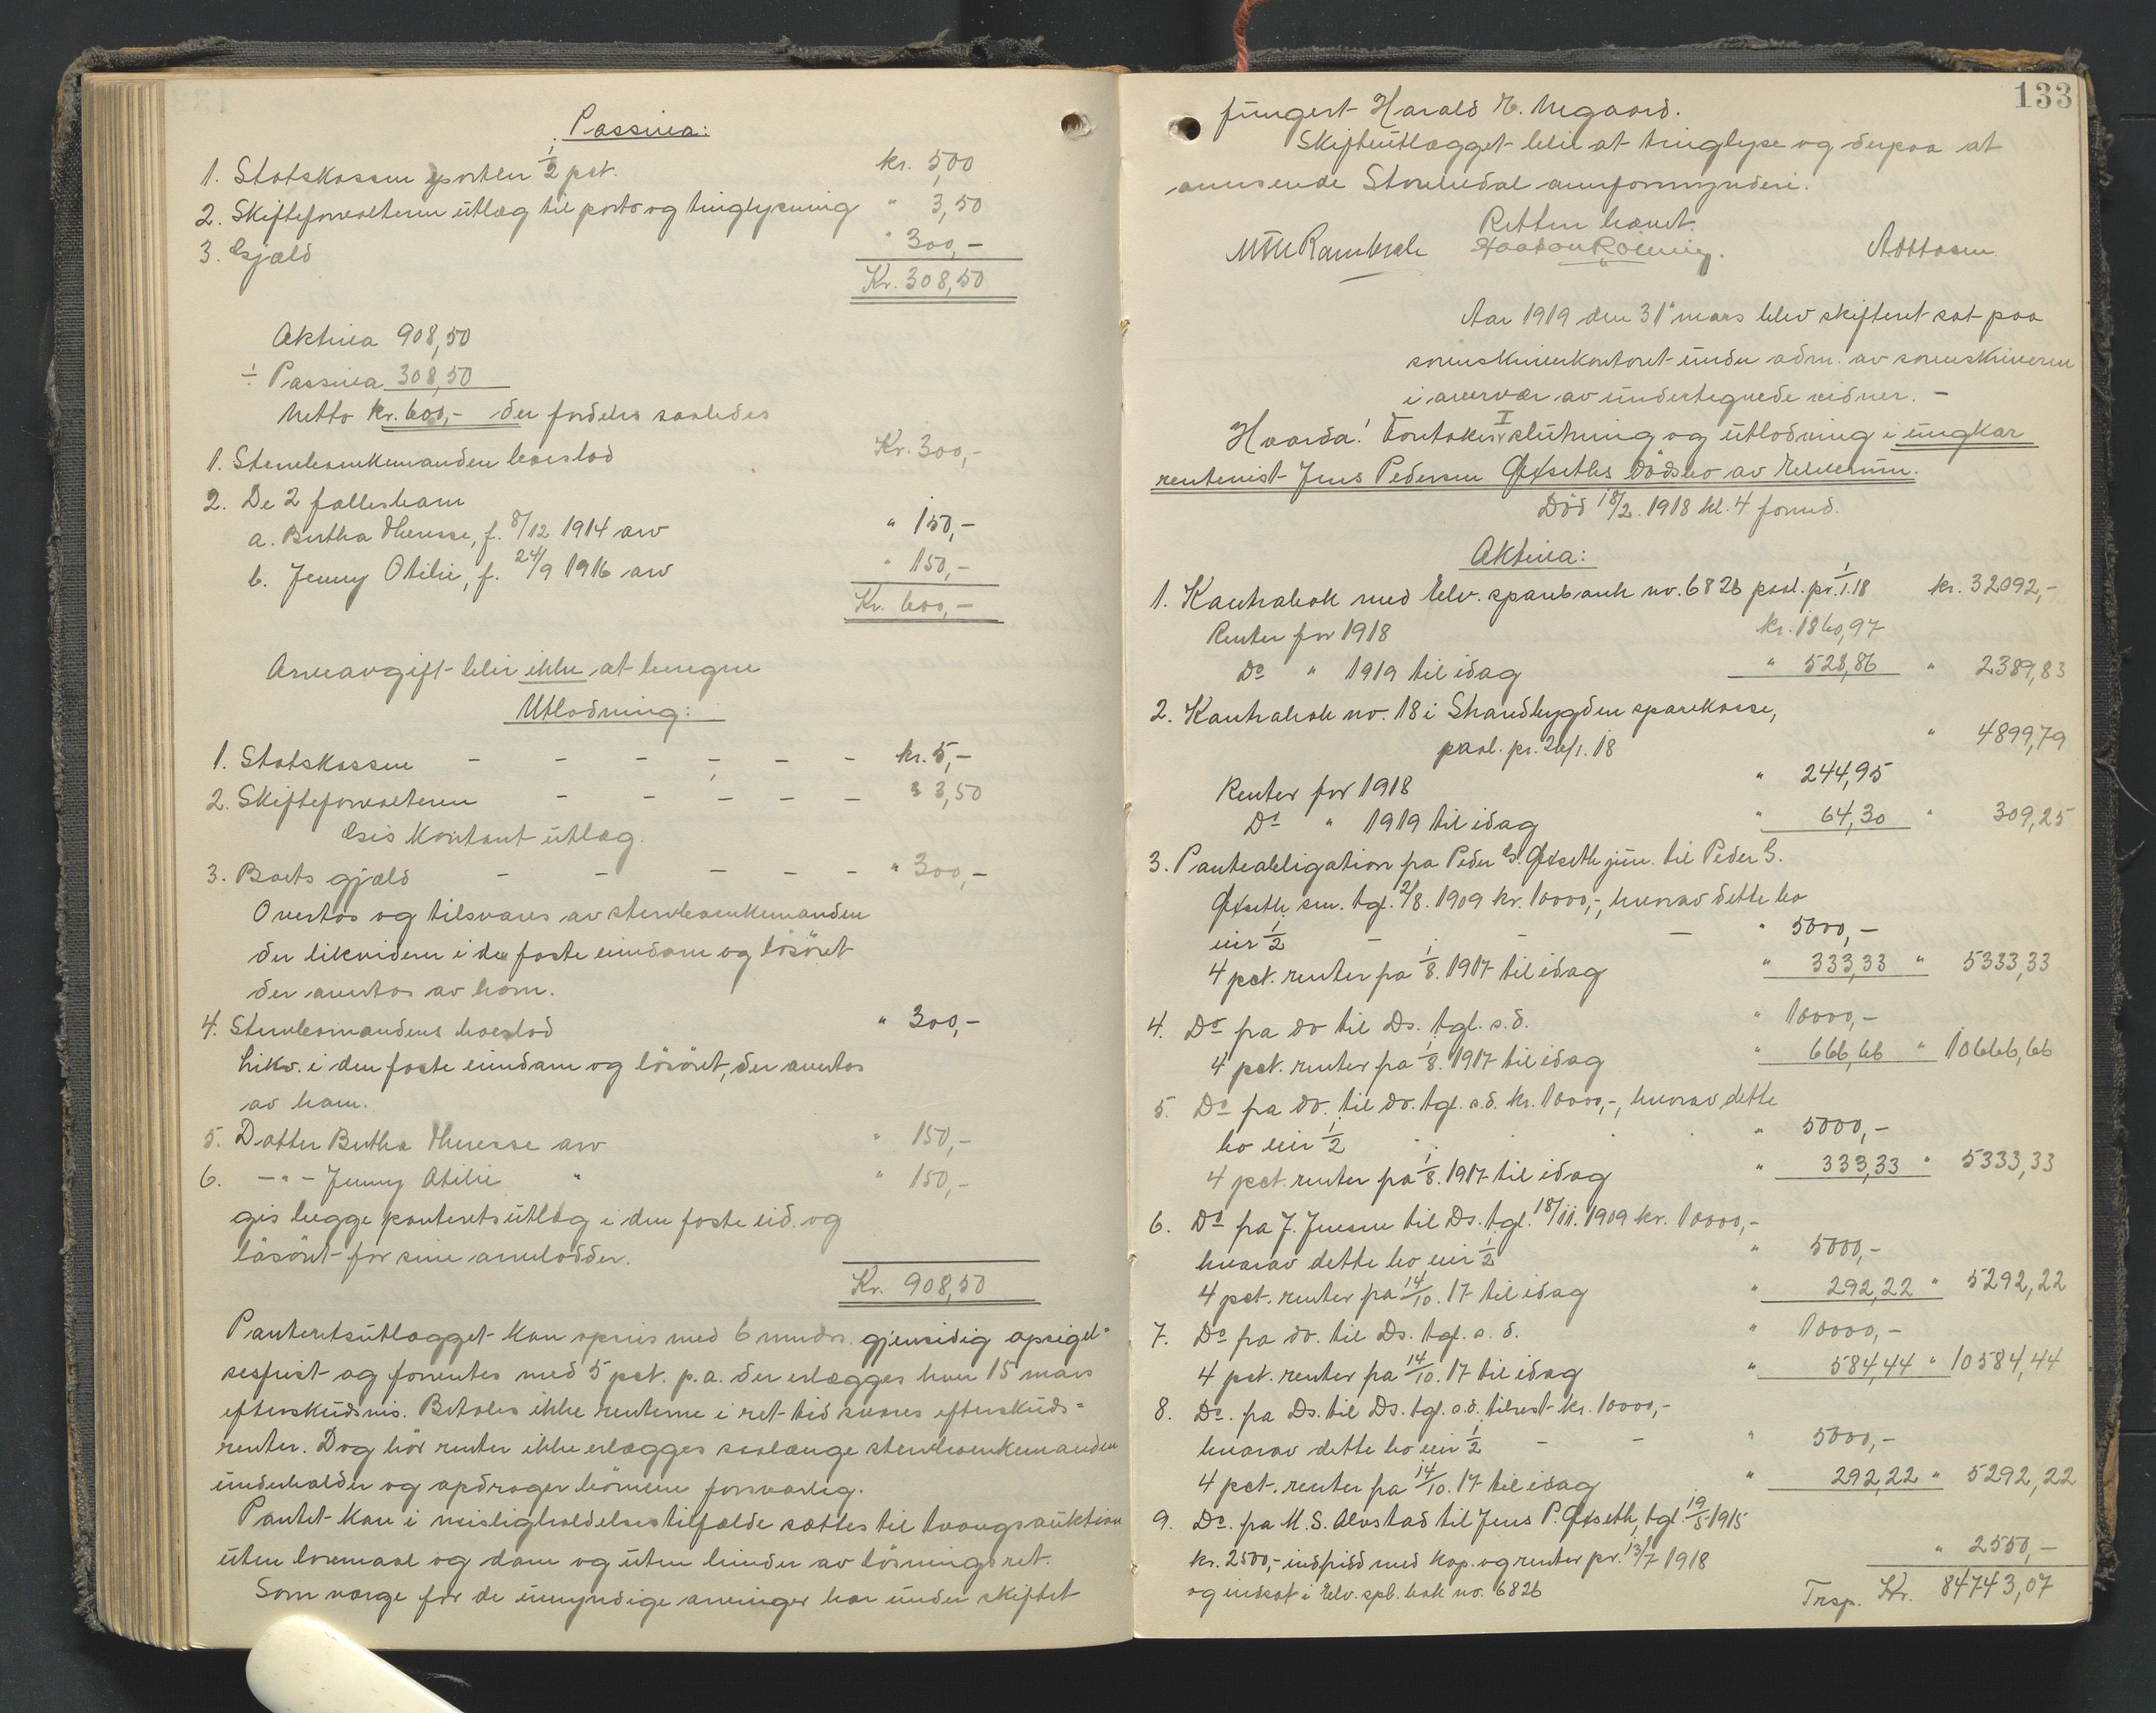 Passiva:
1. Statskassen sportler 1/2 pct. kr. 5,00
2. Skifteforvalteren utlæg til porto og tinglysning " 3,50
3. Gjæld " 300,-
Kr. 308,50
Aktiva 908,50
÷ Passiva 308,50
Netto kr. 600,- der fordeles saaledes
1. Stervboenkemanden boeslod Kr. 300,-
2. De 2 fællesbarn
a. Bertha Therese, f. 8/12 1914 arv " 150,-
b. Jenny Otilie, f. 24/9 1916 arv " 150,-
Kr. 600,-
Arveavgift blir ikke at beregne
Utlodning:
1. Statskassen - - - - - - kr. 5,-
2. Skifteforvalteren - - - - - " 3,50
Gis kontant utlæg.
3. Boets gjæld - - - - - " 300,-
Overtas og tilsvares av stervboenkemanden
der likvideres i den faste eiendom og løsøret
der overtas av ham.
4. Stervbomandens boeslod " 300,-
Likv. i den faste eiendom og løsøret, der overtas
av ham.
5. Datter Bertha Therese arv " 150,-
6. - " - Jenny Otilie " " 150,-
gis begge panteretsutlæg i den faste eid. og
løsøret for sine arvelodder.
Kr. 908,50
Panteretsutlægget kan opsies med 6 mndrs. gjensidig opsigel-
sesfrist og forrentes med 5 pct. p.a. der erlægges hver 15 mars
efterskudsvis. Betales ikke renterne i ret tid svares efterskuds-
renter. Dog bör renter ikke erlægges saalænge stervboenkemanden
underholder og opdrager börnene forsvarlig.
Pantet kan i misligholdelsestilfælde sættes til tvangsauktion
uten lovmaal og dom og uten hinder av lösningsret.
Som værge for de umyndige arvinger har under skiftet
133
fungert Harald E. Negaard.
Skifteutlægget blir at tinglyse og derpaa at
anvisende Storelvedal overformynderi.
Retten hævet.
Haakon Roening. A Ottosen
Aar 1919 den 31' mars blev skifteret sat paa
sorenskriverkontoret under adm. av sorenskriveren
i overvær av undertegnede vidner. -
Hvorda: I Foretokes slutning og utlodning i ungkar
rentenist Jens Pedersen Gfxseths dödsbo av Elverum.
Död 18/2. 1918 kl. 4 formd.
Aktiva:
1. Kontrabok med Elv. sparebank no. 6826 paal. pr. 1/1.18 kr. 32092,-
Renter for 1918 kr. 1860,97
Do " 1919 til idag " 528,86 " 2389,83
2. Kontrabok no. 18 i Strandbygden sparekasse,
paal. pr. 26/1. 18 " 4899,79
Renter for 1918 " 244,95
Do " 1919 til idag " 64,30 " 309,25
3. Panteobligation fra Peder G. Gfxseth jun. til Peder G.
Gfxseth sen. tgl. 2/8. 1909 kr. 10000,-, hvorav dette bo
eier 1/2 - - - " 5000,-
4 pct. renter fra 1/8. 1917 til idag " 333,33 " 5333,33
4. Do fra do til Ds. tgl. s.d. " 10000,-
4 pct. renter fra 1/8. 1917 til idag " 666,66 " 10666,66
5. Do fra do. til do. tgl. s.d. kr. 10000,-, hvorav dette
bo eier 1/2 " 5000,-
4 pct. renter fra 1/8. 1917 til idag " 333,33 " 5333,33
6. Do fra J. Jensen til Ds. tgl. 18/11. 1909 kr. 10000,-
hvorav dette bo eier 1/2 " 5000,-
4 pct. renter fra 14/10. 17 til idag " 292,22 " 5292,22
7. Do fra do. til Ds. tgl. s.d. " 10000,-
4 pct. renter fra 14/10. 17 til idag " 584,44 " 10584,44
8. Do. fra Ds. til Ds. tgl. s.d. tilrest kr. 10000,-
hvorav dette bo eier 1/2 - - " 5000,-
4 pct. renter fra 14/10. 17 til idag " 292,22 " 5292,22
9. Do. fra M. S. Alvstad til Jens P. Gfxseth, tgl. 19/5 1915
kr. 2500,- indfridd med kap. og renter pr. 13/7 1918 " 2550,-
og indsat i Elv. spb. bok no. 6826
Trsp. Kr. 84743,07